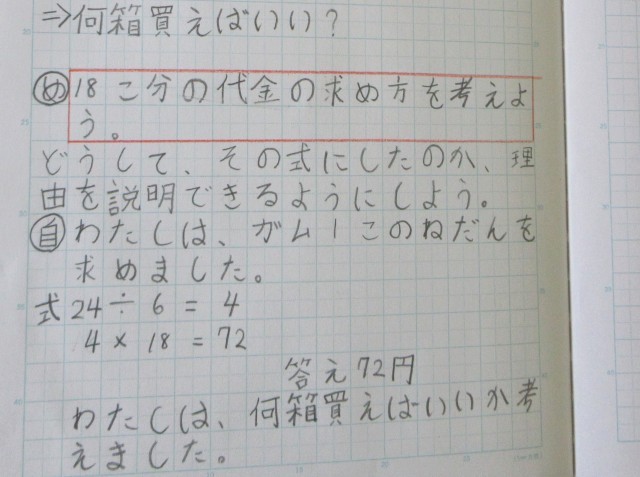 ⇒何箱買えばいい?
め 18こ分の代金の求め方を考えよ
う。
どうして、その式にしたのか、理
由を説明できるようにしよう。
自 わたしは、ガム1このねだんを
求めました。
式 24÷6=4
4×18=72
答え72円
わたしは、何箱買えばいいか考
えました。